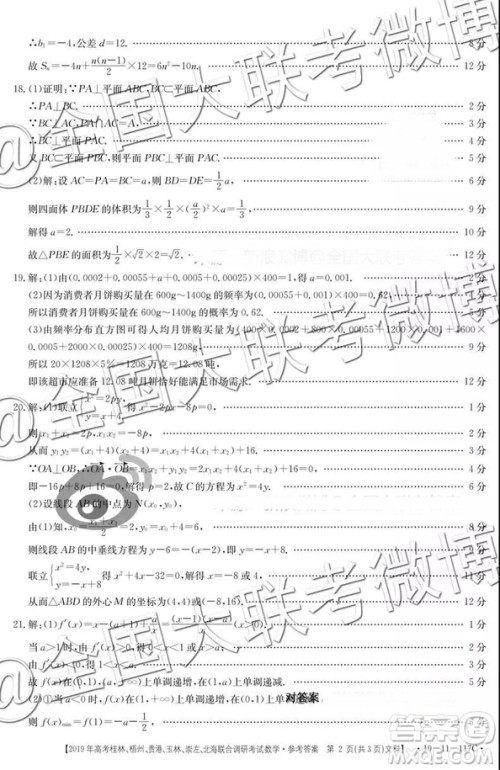 ∴b₁=-4,公差d=12. 8分
故Sₙ=-4n+n(n-1)/2×12=6n²-10n. 12分
18.(1)证明:∵PA⊥平面ABC,BC⊂平面ABC,
∴PA⊥BC. 2分
∵BC⊥AC,PA∩AC=A, 3分
∴BC⊥平面PAC. 4分
又BC⊂平面PBC,则平面PBC⊥平面PAC. 5分
(2)解:设AC=PA=BC=a,则BD=DE=1/2a, 6分
则四面体PBDE的体积为1/3×1/2×(a/2)²×a=1/3. 9分
解得a=2. 10分
故△PBE的面积为1/2×√2×2=√2. 12分
19.解:(1)由(0.0002+0.00055+a+0.0005+0.00025)×400=1,得a=0.001. 2分
(2)因为消费者月饼购买量在600g~1400g的频率为(0.00055+0.001)×400=0.62,
所以消费者月饼购买量在600g~1400g的概率为0.62. 5分
(3)由频率分布直方图可得人均月饼购买量为(400×0.0002+800×0.00055+1200×0.001+1600×
0.0005+2000×0.00025)×400=1208g,
所以20×1208×5%=1208万克=12.08吨,
即该超市应准备12.08吨月饼恰好能满足市场需求. 12分
20.解:(1)联立{x²=2py, y=x+4
则x₁+x₂=2p,x₁x₂=-8p, 2分
从而y₁y₂=(x₁+4)(x₂+4)=x₁x₂+4(x₁+x₂)+16. 3分
∵OA⊥OB,∴OA·OB=x₁x₂+y₁y₂=2x₁x₂+4(x₁+x₂)+16=0, 4分
即-16p+8p+16=0,解得p=2,故C的方程为x²=4y. 6分
(2)设线段AB的中点为N(x₀,y₀),
由(1)知,x₀=(x₁+x₂)/2=2,y₀=x₀+4=6, 8分
则线段AB的中垂线方程为y-6=-(x-2),即y=-x+8. 9分
联立{x²=4y, y=-x+8 得x²+4x-32=0,解得x=-8或4, 11分
从而△ABD的外心M的坐标为(4,4)或(-8,16). 12分
21.解:(1)f'(x)=x-(a+1)+a/x=(x-1)(x-a)/x. 2分
当a>1时,由f'(x)<0,得1<x<a.
由f'(x)<0,得1<x<a, 4分
(2)①当a<0时,f(x)在(1,+∞)上单调递增,在(0,1)上单调递减, 对答案
则f(x)min=f(1)=-a-1/2 5分
【2019年高考桂林、梧州、贵港、玉林、崇左、北海联合调研考试数学·参考答案 第2页(共3页)文科】
@全国大联考微博
@全国大联考微博